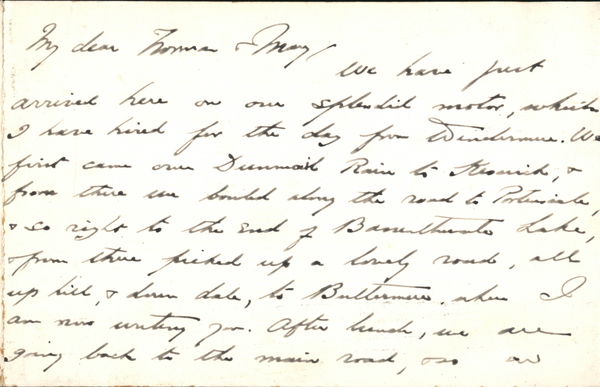 My dear Norman & May,
We have just
arrived here on our splendid motor, which
I have hired for the day from Windermere. We
first came over Dunmail Raise to Keswick, &
from there we bowled along the road to Portinscale,
& so right to the end of Bassenthwaite Lake,
& from there picked up a lovely road, all
up hill, & down dale, to Buttermere, where I
am now writing you. After lunch, we are
going back to the main road, & so on